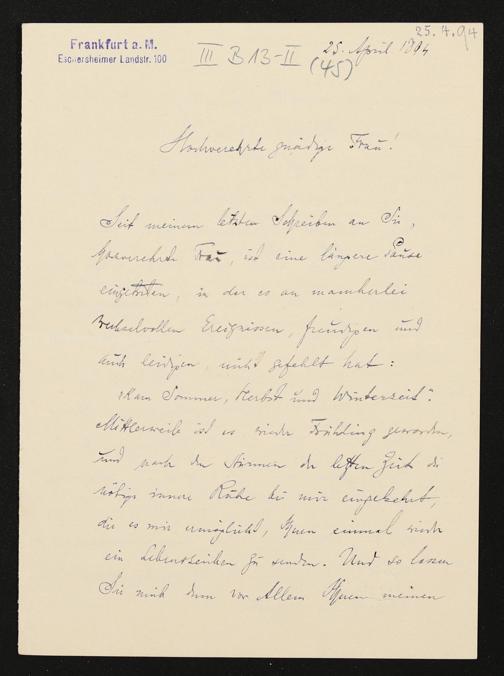 25.4.94
Frankfurt a. M.
Eschersheimer Landstr. 100
III B 13-II
25. April 1894
(45)
Hochverehrte gnädige Frau!
Seit meinem letzten Schreiben an Sie,
hochverehrte Frau, ist eine längere Pause
eingetreten, in der es an mancherlei
wechselvollen Ereignissen, freudigen und
auch leidigen, nicht gefehlt hat:
"Kam Sommer, Herbst und Winterzeit".
Mittlerweile ist es wieder Frühling geworden,
und nach den Stürmen der letzten Zeit die
nötige innere Ruhe bei mir eingekehrt,
die es mir ermöglicht, Ihnen einmal wieder
ein Lebenszeichen zu senden. Und so lassen
Sie mich denn vor Allem Ihnen meinen